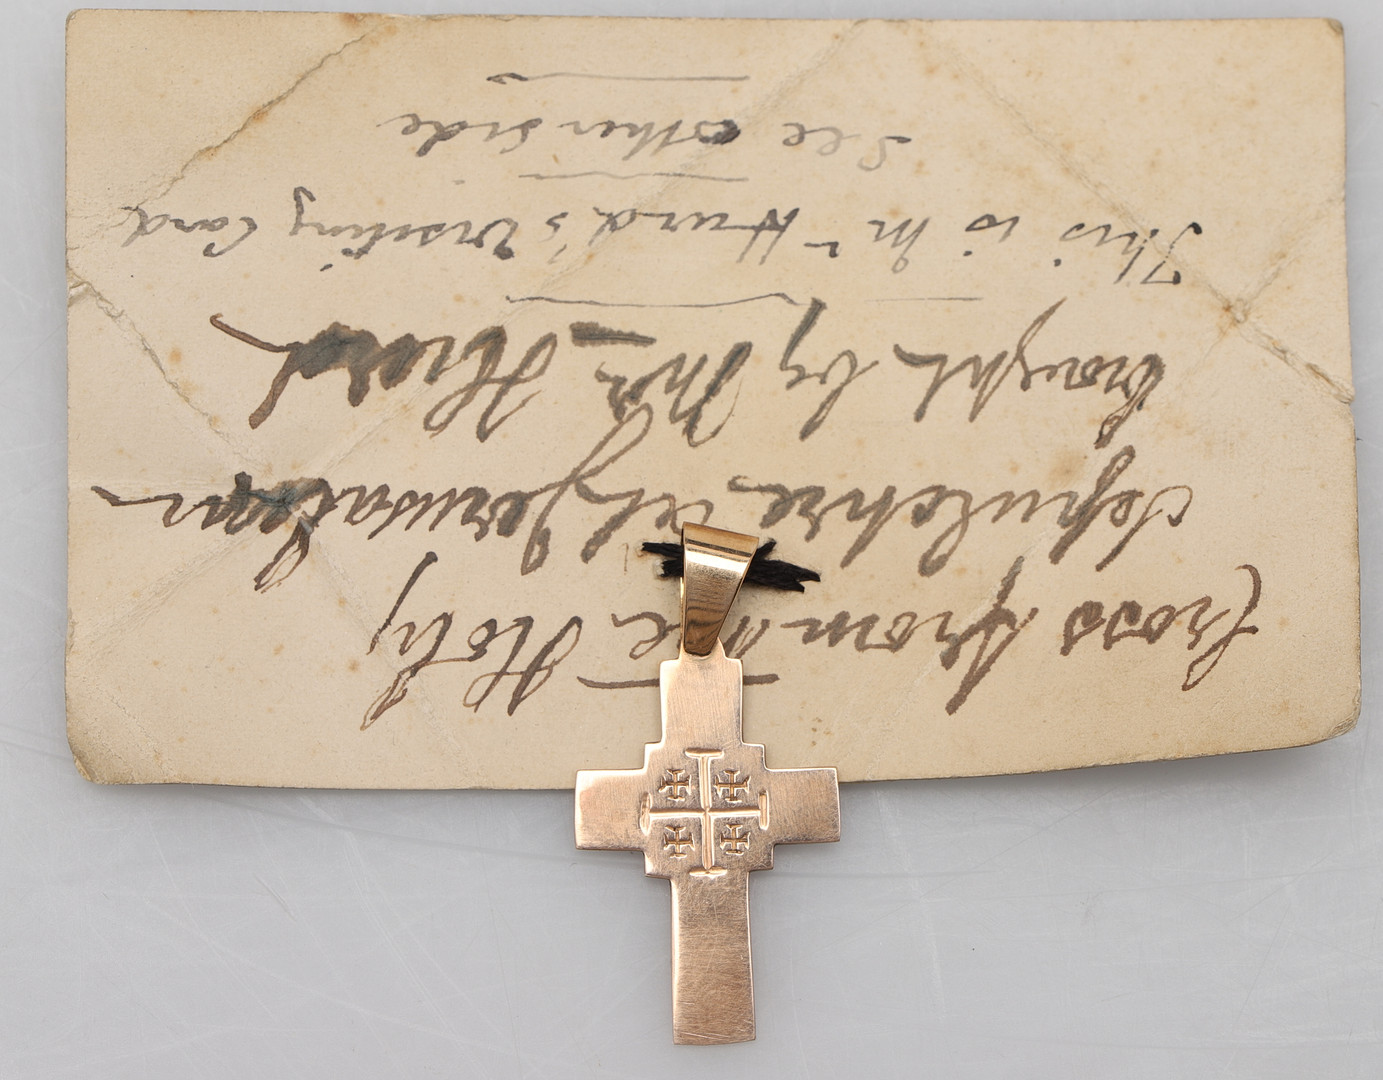 Cross from the Holy
Sepulchre at Jerusalem
brought by Mr Hurd
This is Mr Hurd's Visiting Card
See other side